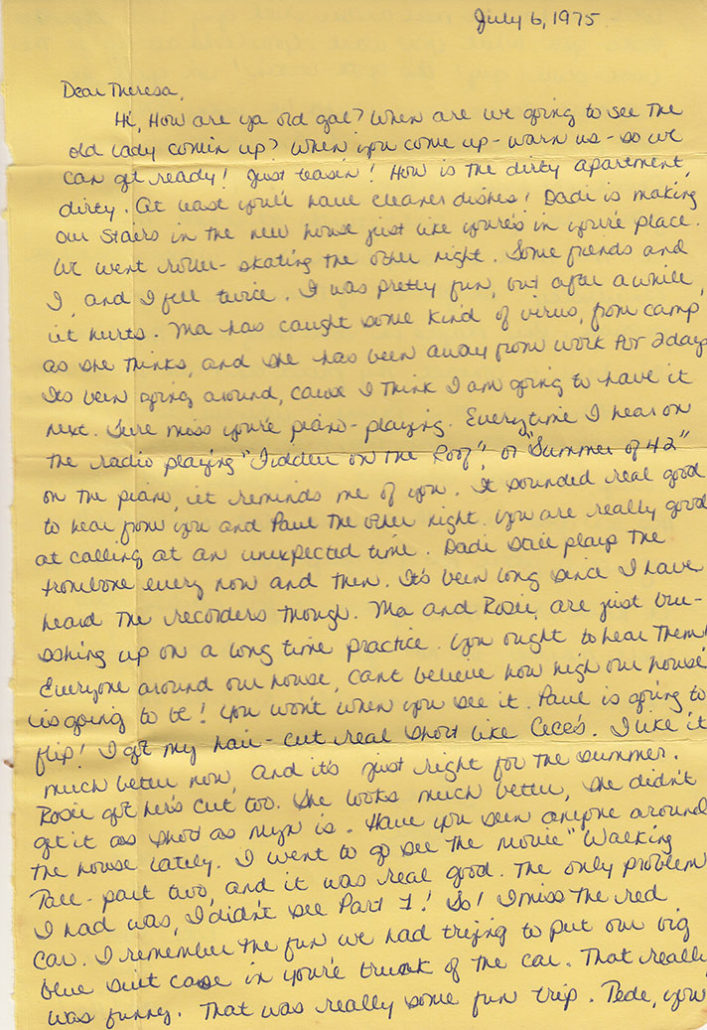 July 6, 1975
Dear Theresa,
Hi, How are ya old gal? When are we going to see the
old lady comin up? When you come up - warn us - so we
can get ready! Just teasin! How is the dirty apartment,
dirty. At least you'll have cleaner dishes! Dadi is making
our stairs in the new house just like youre's in you're place.
We went roller-skating the other night. Some friends and
I, and I fell twice. It was pretty fun, but after awhile,
it hurts. Ma has caught some kind of virus, from camp
as she thinks, and she has been away from work for 2 days
Its been going around, cause I think I am going to have it
next. Sure miss you're piano-playing. Everytime I hear on
the radio playing "Fiddler on the Roof", or "Summer of 42"
on the piano, it reminds me of you. It sounded real good
to hear from you and Paul the other night. You are really good
at calling at an unexpected time. Dadi still plays the
trombone every now and then. It's been long since I have
heard the recorders though. Ma and Rosie, are just bru-
shing up on a long time practice. You ought to hear them!
Everyone around our house, cant believe how high our house
is going to be! You won't when you see it. Paul is going to
flip! I got my hair-cut real short like Cece's. I like it
much better now, and it's just right for the summer.
Rosie got her's cut too. She looks much better, she didn't
get it as short as myn is. Have you seen anyone around
the house lately. I went to go see the movie "Walking
Tall - part two, and it was real good. The only problem
I had was, I didn't see Part 1! So! I miss the red
car. I remember the fun we had trying to put our big
blue suit case in you're trunk of the car. That really
was funny. That was really some fun trip. Pede, you